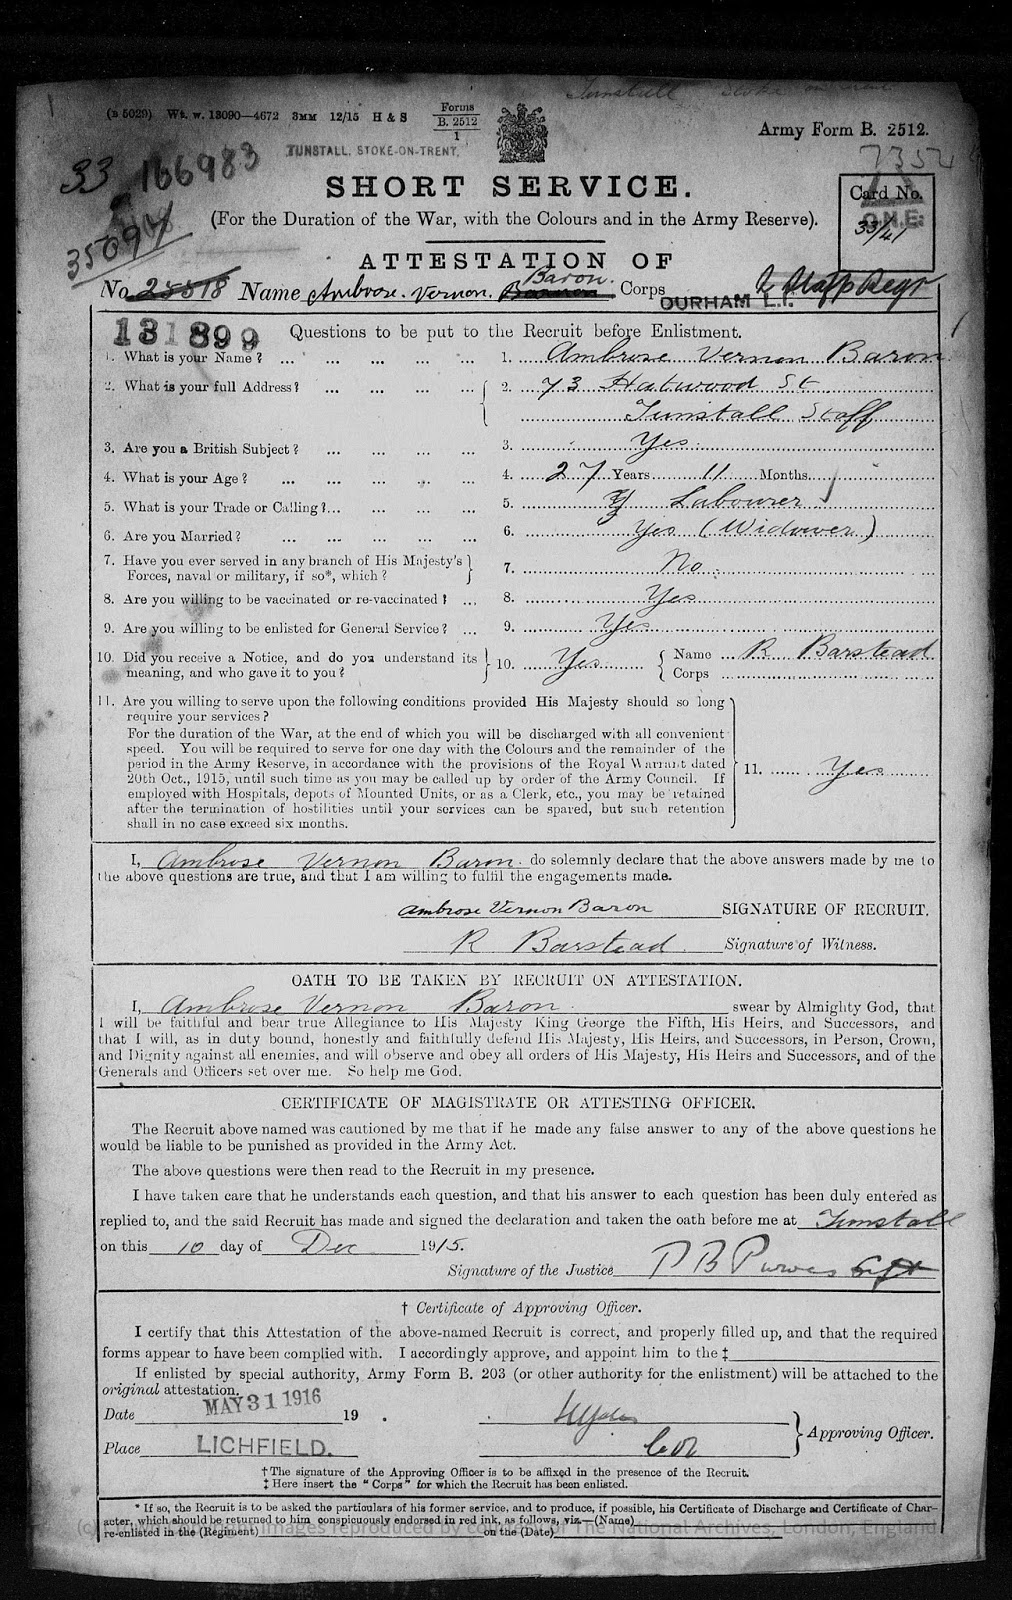 Tunstall Stoke on Trent
(B 5029) Wt. w. 13090—4672 3MM 12/15 H & S Forms B. 2512 1
Army Form B. 2512.
TUNSTALL, STOKE-ON-TRENT,
33 166983
7352
SHORT SERVICE.
Card No.
O.N.E.
33/41
(For the Duration of the War, with the Colours and in the Army Reserve).
35094
ATTESTATION OF
Baron.
No. 25518 Name Ambrose. Vernon. Corps DURHAM L.I.
131899 Questions to be put to the Recruit before Enlistment.
1. What is your Name? ... ... ... ... 1. Ambrose Vernon Baron
2. What is your full Address? ... ... ... 2. 73 Hatwood St
Tunstall Staff
3. Are you a British Subject? ... ... ... ... 3. Yes.
4. What is your Age? ... ... ... ... ... 4. 27 Years 11 Months.
5. What is your Trade or Calling?... ... ... ... 5. Labourer
6. Are you Married? ... ... ... ... ... 6. Yes (Widower)
7. Have you ever served in any branch of His Majesty's
Forces, naval or military, if so*, which? 7. No.
8. Are you willing to be vaccinated or re-vaccinated? ... 8. Yes
9. Are you willing to be enlisted for General Service? ... 9. Yes
10. Did you receive a Notice, and do you understand its
meaning, and who gave it to you? 10. Yes Name R Barstead
Corps
11. Are you willing to serve upon the following conditions provided His Majesty should so long
require your services?
For the duration of the War, at the end of which you will be discharged with all convenient
speed. You will be required to serve for one day with the Colours and the remainder of the
period in the Army Reserve, in accordance with the provisions of the Royal Warrant dated
20th Oct., 1915, until such time as you may be called up by order of the Army Council. If
employed with Hospitals, depots of Mounted Units, or as a Clerk, etc., you may be retained
after the termination of hostilities until your services can be spared, but such retention
shall in no case exceed six months.
11. Yes
I, Ambrose Vernon Baron. do solemnly declare that the above answers made by me to
the above questions are true, and that I am willing to fulfil the engagements made.
Ambrose Vernon Baron SIGNATURE OF RECRUIT.
R Barstead. Signature of Witness.
OATH TO BE TAKEN BY RECRUIT ON ATTESTATION.
I, Ambrose Vernon Baron. swear by Almighty God, that
I will be faithful and bear true Allegiance to His Majesty King George the Fifth, His Heirs, and Successors, and
that I will, as in duty bound, honestly and faithfully defend His Majesty, His Heirs, and Successors, in Person, Crown,
and Dignity against all enemies, and will observe and obey all orders of His Majesty, His Heirs and Successors, and of the
Generals and Officers set over me. So help me God.
CERTIFICATE OF MAGISTRATE OR ATTESTING OFFICER.
The Recruit above named was cautioned by me that if he made any false answer to any of the above questions he
would be liable to be punished as provided in the Army Act.
The above questions were then read to the Recruit in my presence.
I have taken care that he understands each question, and that his answer to each question has been duly entered as
replied to, and the said Recruit has made and signed the declaration and taken the oath before me at Tunstall
on this 10 day of Dec 1915.
Signature of the Justice P B Purves
† Certificate of Approving Officer.
I certify that this Attestation of the above-named Recruit is correct, and properly filled up, and that the required
forms appear to have been complied with. I accordingly approve, and appoint him to the ‡
If enlisted by special authority, Army Form B. 203 (or other authority for the enlistment) will be attached to the
original attestation.
Date MAY 31 1916 19 .
Place LICHFIELD. Col Approving Officer.
† The signature of the Approving Officer is to be affixed in the presence of the Recruit.
‡ Here insert the "Corps" for which the Recruit has been enlisted.
* If so, the Recruit is to be asked the particulars of his former service, and to produce, if possible, his Certificate of Discharge and Certificate of Char-
acter, which should be returned to him conspicuously endorsed in red ink, as follows, viz.—(Name)
re-enlisted in the (Regiment) on the (Date)
images reproduced by courtesy of The National Archives, London, England